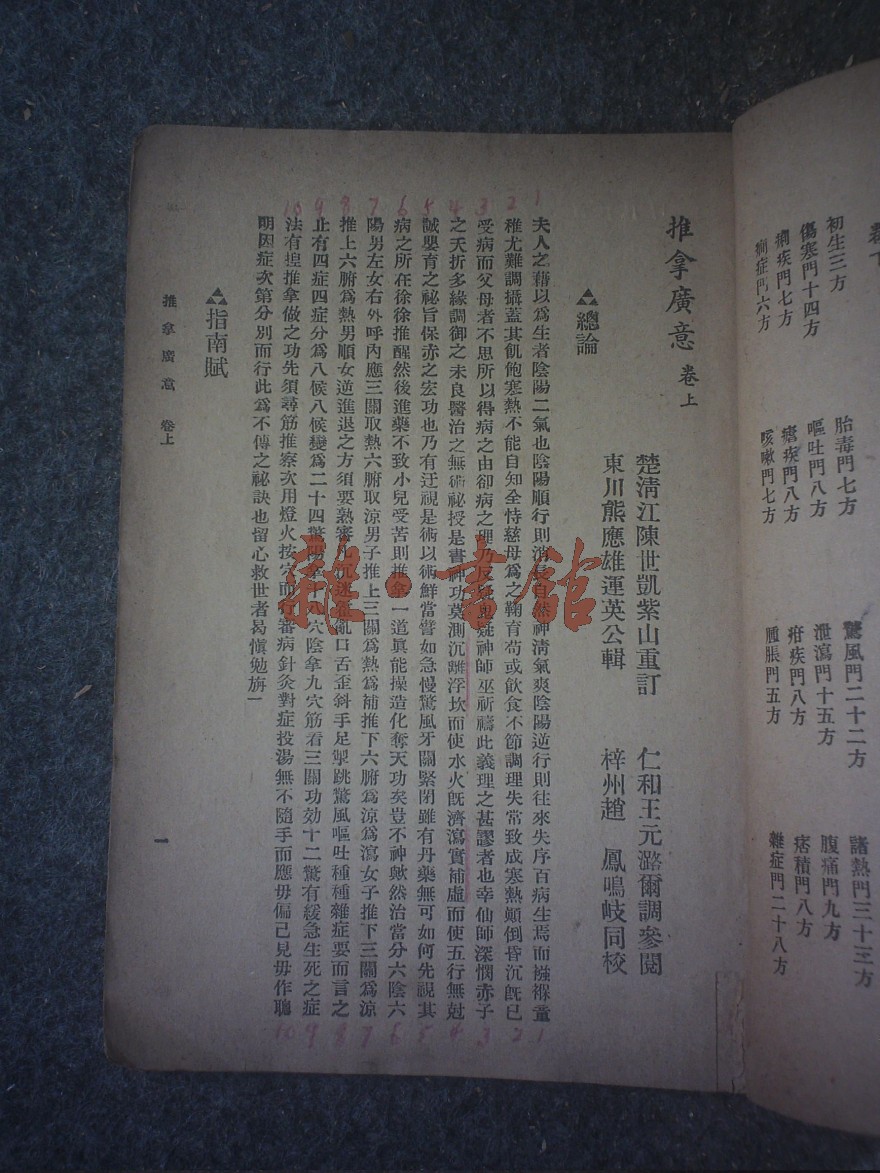 卷下
初生三方
胎毒門七方
驚風門二十二方
諸熱門三十三方
傷寒門十四方
嘔吐門八方
泄瀉門十五方
腹痛門九方
痢疾門七方
瘧疾門八方
疳疾門八方
痞積門八方
癇症門六方
咳嗽門七方
腫脹門五方
雜症門二十八方
推拿廣意 卷上
楚清江陳世凱紫山重訂
仁和王元潞爾調參閱
東川熊應雄運英公輯
梓州趙 鳳鳴岐同校
總論
夫人之藉以爲生者陰陽二氣也陰陽順行則消長自然神清氣爽陰陽逆行則往來失序百病生焉而襁褓童
稚尤難調攝蓋其飢飽寒熱不能自知全恃慈母爲之鞠育苟或飲食不節調理失常致成寒熱顚倒昏沉旣已
受病而父母者不思所以得病之由卻病之理乃反疑鬼疑神師巫祈禱此義理之甚謬者也幸仙師深憫赤子
之夭折多緣調御之未良醫治之無術祕授是書神功莫測沉離浮坎而使水火旣濟瀉實補虛而使五行無尅
誠嬰育之祕旨保赤之宏功也乃有迂視是術以術鮮當譬如急慢驚風牙關緊閉雖有丹藥無可如何先視其
病之所在徐徐推醒然後進藥不致小兒受苦則推拿一道眞能操造化奪天功矣豈不神歟然治當分六陰六
陽男左女右外呼內應三關取熱六腑取涼男子推上三關爲熱爲補推下六腑爲涼爲瀉女子推下三關爲涼
推上六腑爲熱男順女逆進退之方須要熟審凡沉迷霍亂口舌歪斜手足掣跳驚風嘔吐種種雜症要而言之
止有四症四症分爲八候八候變爲二十四驚陽拿十八穴陰拿九穴筋看三關功効十二驚有緩急生死之症
法有揑推拿做之功先須尋筋推察次用燈火按穴而行審病針灸對症投湯無不隨手而應毋偏己見毋作聰
明因症次第分別而行此爲不傳之祕訣也留心救世者曷愼勉旃一
指南賦
推拿廣意 卷上
一
1 2 3 4 5 6 7 8 9 10
1 2 3 4 5 6 7 8 9 10
雜·書館